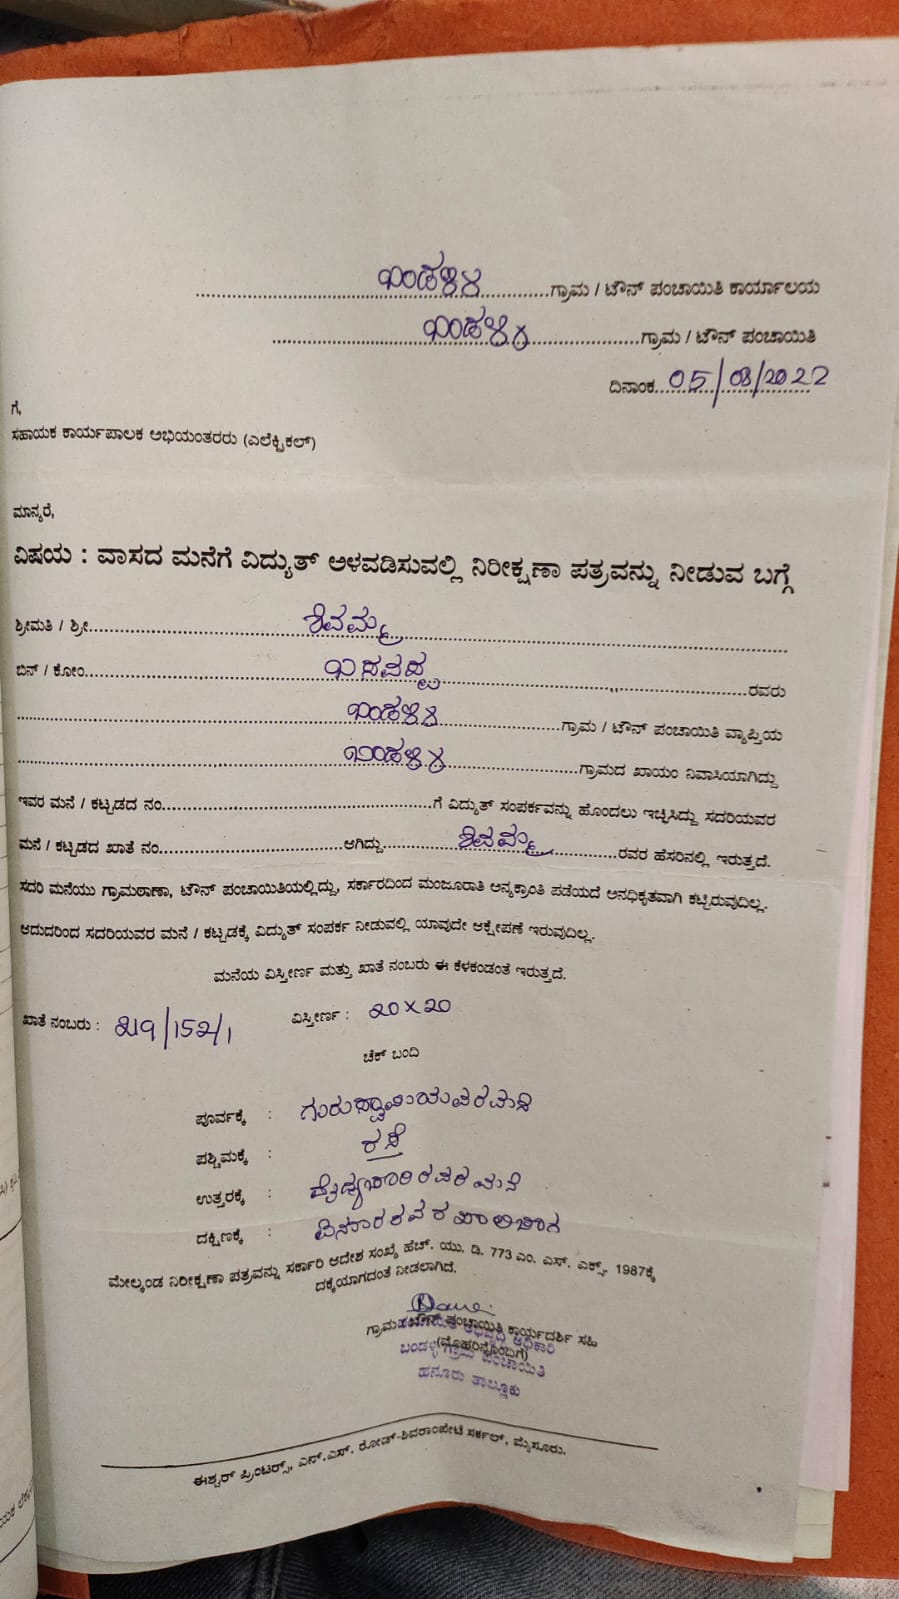 ಬಂಡಳ್ಳಿ ಗ್ರಾಮ / ಟೌನ್ ಪಂಚಾಯಿತಿ ಕಾರ್ಯಾಲಯ
ಬಂಡಳ್ಳಿ ಗ್ರಾಮ / ಟೌನ್ ಪಂಚಾಯಿತಿ
ದಿನಾಂಕ 05/08/2022
ಗೆ,
ಸಹಾಯಕ ಕಾರ್ಯಪಾಲಕ ಅಭಿಯಂತರರು (ಎಲೆಕ್ಟ್ರಿಕಲ್)
ಮಾನ್ಯರೆ,
ವಿಷಯ : ವಾಸದ ಮನೆಗೆ ವಿದ್ಯುತ್ ಅಳವಡಿಸುವಲ್ಲಿ ನಿರೀಕ್ಷಣಾ ಪತ್ರವನ್ನು ನೀಡುವ ಬಗ್ಗೆ
ಶ್ರೀಮತಿ / ಶ್ರೀ ಶಿವಮ್ಮ
ಬಿನ್ / ಕೋಂ ಬಸವಪ್ಪ ರವರು
ಬಂಡಳ್ಳಿ ಗ್ರಾಮ / ಟೌನ್ ಪಂಚಾಯಿತಿ ವ್ಯಾಪ್ತಿಯ
ಬಂಡಳ್ಳಿ ಗ್ರಾಮದ ಖಾಯಂ ನಿವಾಸಿಯಾಗಿದ್ದು
ಇವರ ಮನೆ / ಕಟ್ಟಡದ ನಂ. ಗೆ ವಿದ್ಯುತ್ ಸಂಪರ್ಕವನ್ನು ಹೊಂದಲು ಇಚ್ಛಿಸಿದ್ದು ಸದರಿಯವರ
ಮನೆ / ಕಟ್ಟಡದ ಖಾತೆ ನಂ. ಆಗಿದ್ದು ಶಿವಮ್ಮ ರವರ ಹೆಸರಿನಲ್ಲಿ ಇರುತ್ತದೆ.
ಸದರಿ ಮನೆಯು ಗ್ರಾಮಠಾಣಾ, ಟೌನ್ ಪಂಚಾಯಿತಿಯಲ್ಲಿದ್ದು, ಸರ್ಕಾರದಿಂದ ಮಂಜೂರಾತಿ ಅನ್ಯಕ್ರಾಂತಿ ಪಡೆಯದೆ ಅನಧಿಕೃತವಾಗಿ ಕಟ್ಟಿರುವುದಿಲ್ಲ.
ಆದುದರಿಂದ ಸದರಿಯವರ ಮನೆ / ಕಟ್ಟಡಕ್ಕೆ ವಿದ್ಯುತ್ ಸಂಪರ್ಕ ನೀಡುವಲ್ಲಿ ಯಾವುದೇ ಆಕ್ಷೇಪಣೆ ಇರುವುದಿಲ್ಲ.
ಮನೆಯ ವಿಸ್ತೀರ್ಣ ಮತ್ತು ಖಾತೆ ನಂಬರು ಈ ಕೆಳಕಂಡಂತೆ ಇರುತ್ತದೆ.
ಖಾತೆ ನಂಬರು : 219/152/1 ವಿಸ್ತೀರ್ಣ : 20 X 20
ಚೆಕ್ ಬಂದಿ
ಪೂರ್ವಕ್ಕೆ : ಗುರುಸ್ವಾಮಿಯವರ ಮನೆ
ಪಶ್ಚಿಮಕ್ಕೆ : ರಸ್ತೆ
ಉತ್ತರಕ್ಕೆ : ರವರ ಮನೆ
ದಕ್ಷಿಣಕ್ಕೆ : ಖಾಲಿ ಜಾಗ
ಮೇಲ್ಕಂಡ ನಿರೀಕ್ಷಣಾ ಪತ್ರವನ್ನು ಸರ್ಕಾರಿ ಆದೇಶ ಸಂಖ್ಯೆ ಹೆಚ್. ಯು. ಡಿ. 773 ಎಂ. ಎಸ್. ಎಕ್ಸ್. 1987ಕ್ಕೆ
ದಕ್ಕೆಯಾಗದಂತೆ ನೀಡಲಾಗಿದೆ.
ಗ್ರಾಮ / ಟೌನ್ ಪಂಚಾಯಿತಿ ಕಾರ್ಯದರ್ಶಿ ಸಹಿ
(ಮೊಹರಿನೊಂದಿಗೆ)
ಅಭಿವೃದ್ಧಿ ಅಧಿಕಾರಿ
ಬಂಡಳ್ಳಿ ಗ್ರಾಮ ಪಂಚಾಯಿತಿ
ಹನೂರು ತಾಲ್ಲೂಕು
ಈಶ್ವರ್ ಪ್ರಿಂಟರ್ಸ್, ಎನ್.ಎಸ್. ರೋಡ್-ಶಿವರಾಂಪೇಟೆ ಸರ್ಕಲ್, ಮೈಸೂರು.